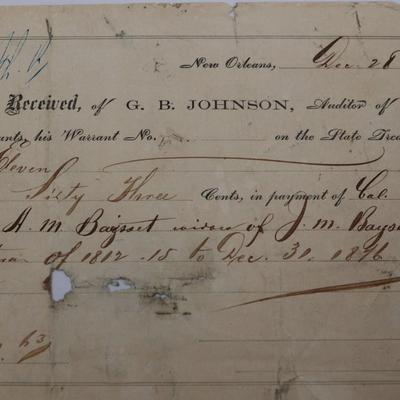 New Orleans, Dec. 28
Received, of G. B. JOHNSON, Auditor of
his Warrant No. on the State Trea
leven
Sixty Three Cents, in payment of Cal.
A. M Baysset widow of J. M. Bayss
of 1812.15 to Dec. 31. 1876
63